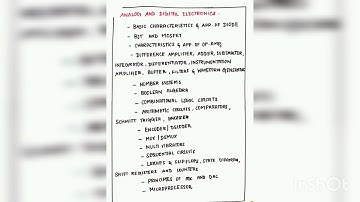 ANALOG AND DIGITAL ELECTRONICS -
- BASIC CHARACTERISTICS & APP. OF DIODE
- BJT AND MOSFET
- CHARACTERISTICS & APP. OF OP-AMPS
- DIFFERENCE AMPLIFIER, ADDER, SUBTRACTOR,
INTEGRATOR, DIFFERENTIATOR, INSTRUMENTATION
AMPLIFIER, BUFFER, FILTERS & WAVEFORM GENERATOR
- NUMBER SYSTEMS
- BOOLEAN ALGEBRA
- COMBINATIONAL LOGIC CIRCUITS
- ARITHMETIC CIRCUITS, COMPARATORS,
SCHMITT TRIGGER,
- ENCODER / DECODER
- MUX / DEMUX
- MULTI VIBRATORS
- SEQUENTIAL CIRCUITS
- LATCHES & FLIPFLOPS, STATE DIAGRAM,
SHIFT REGISTERS AND COUNTERS
- PRINCIPLES OF ADC AND DAC
- MICROPROCESSOR
InShot